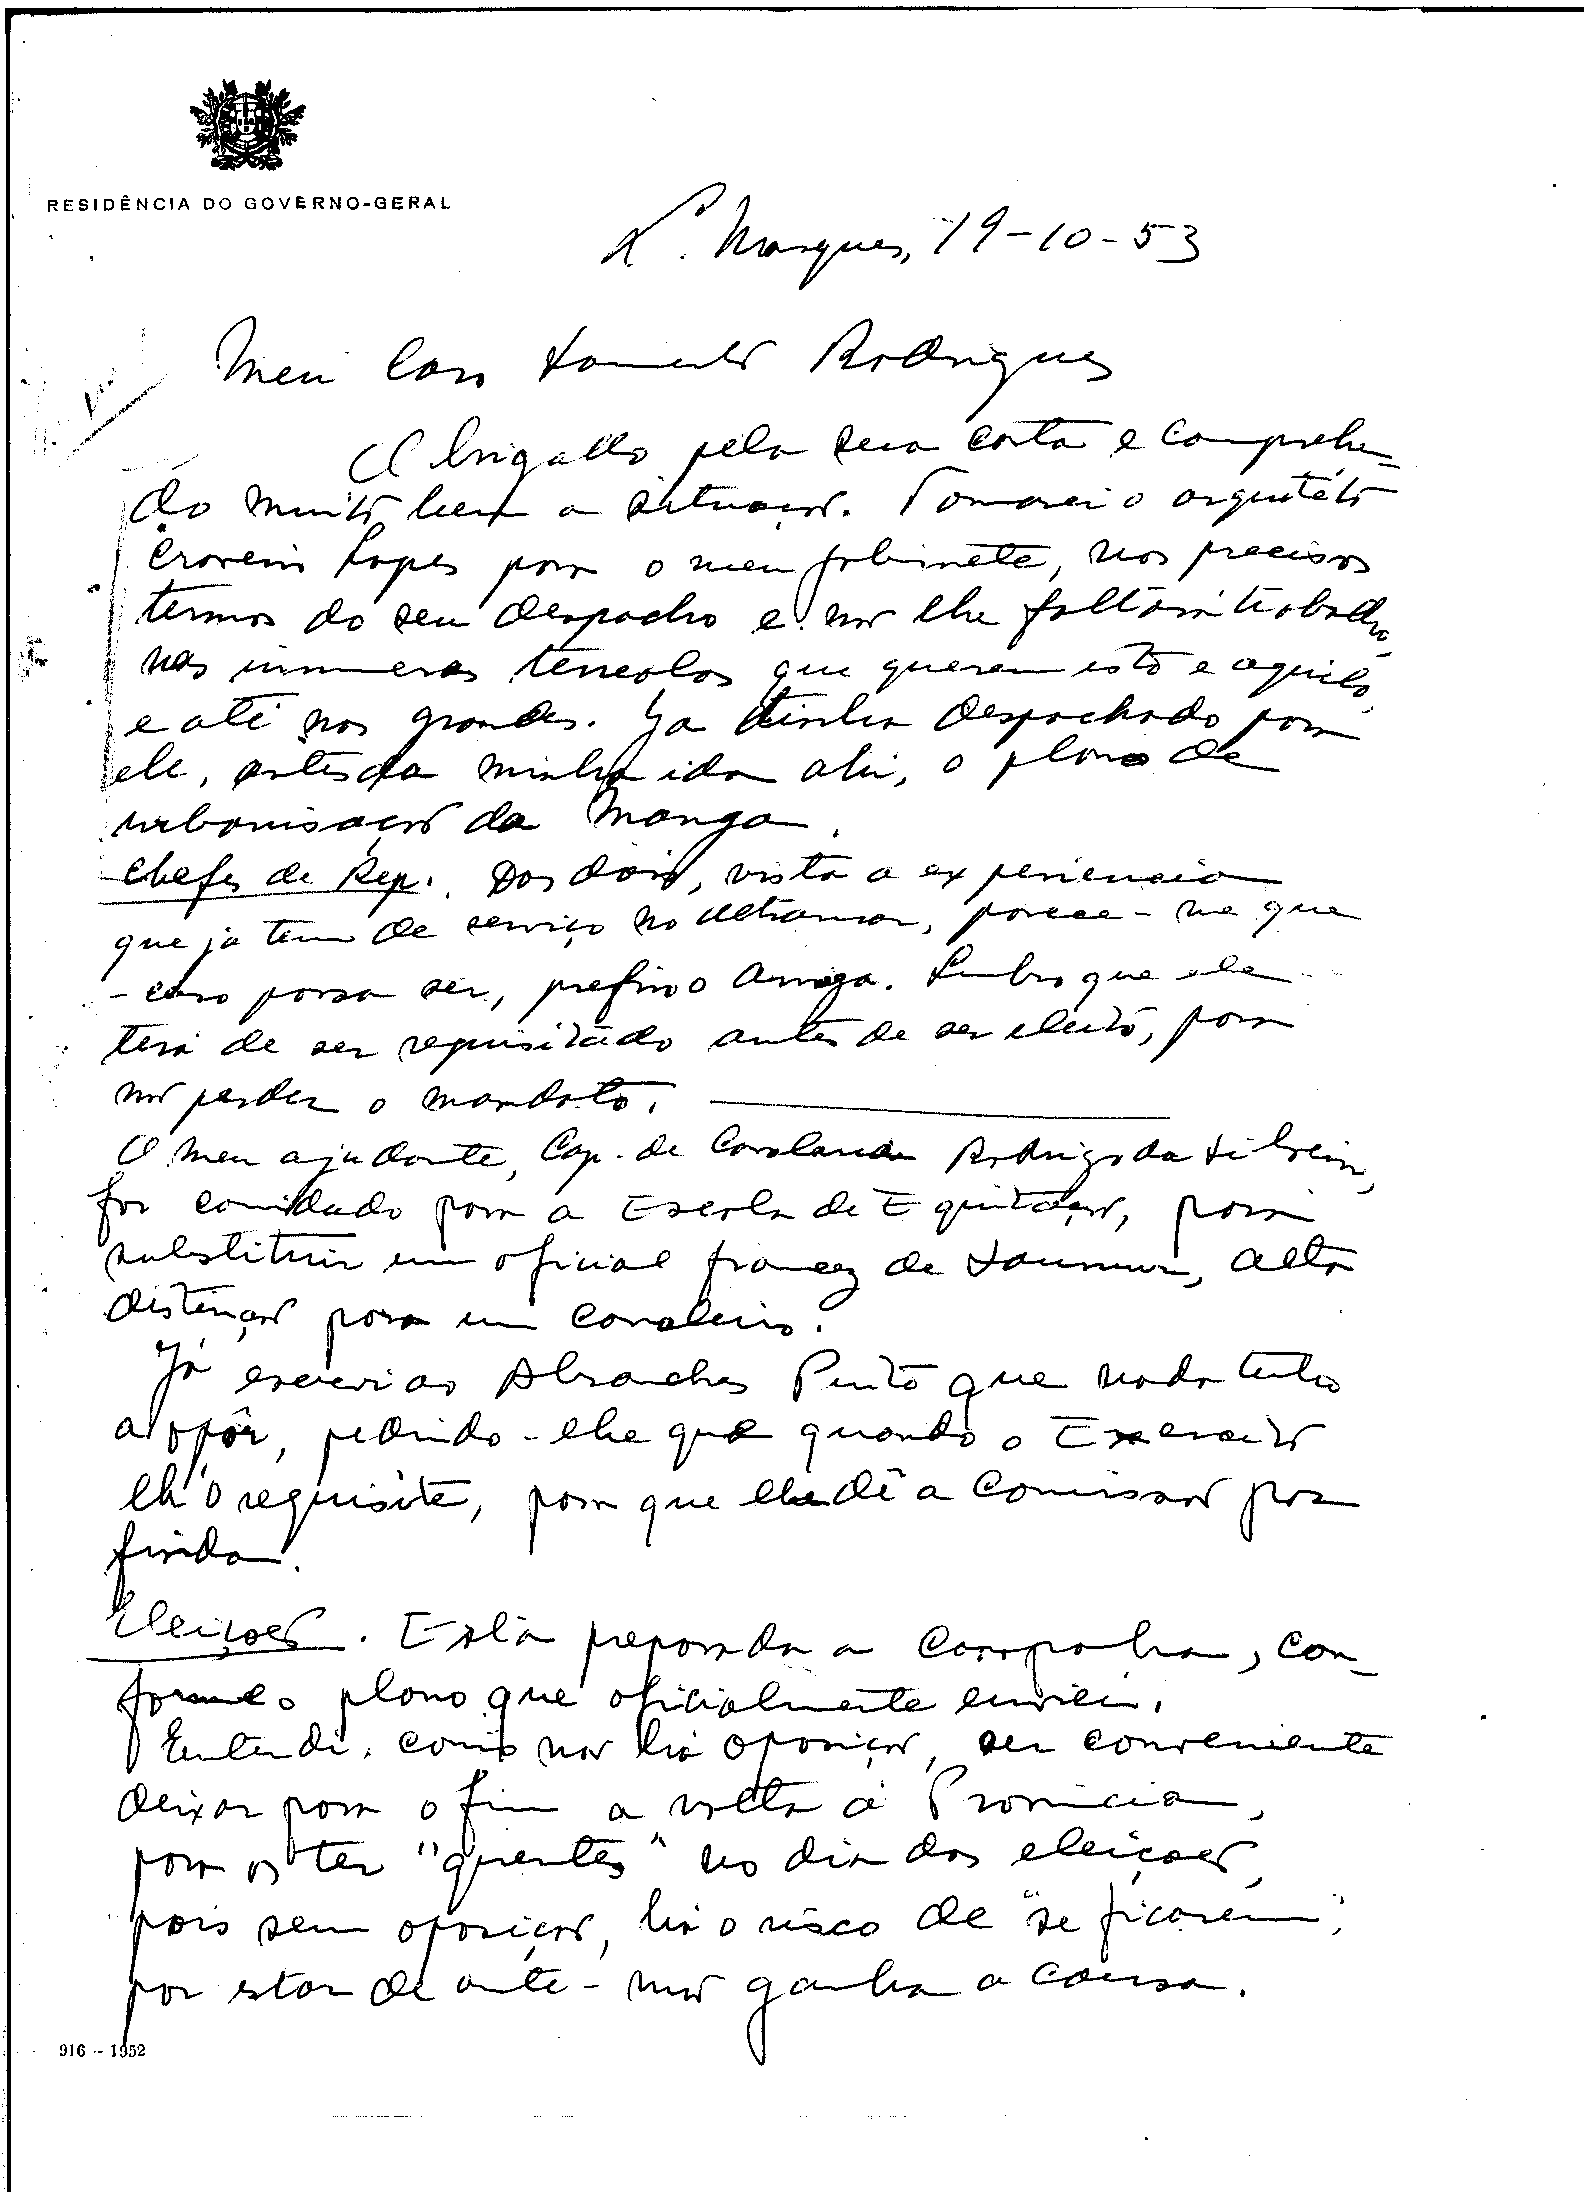 RESIDÊNCIA DO GOVERNO-GERAL
L. Marques, 19-10-53
Meu Caro Sarmento Rodrigues
Obrigado pela sua carta e comprehen-
do muito bem a situação. Tomarei o arquitéto
Craveiro Lopes para o meu gabinete, nos precisos
termos do seu despacho e não lhe faltará trabalho,
nas inumeras que querem isto e aquilo,
e até nos grandes. Ja tinha despachado para
ele, antes da minha ida ahi, o plano de
urbanisação da Manga.
Chefes de Rep. Dos dois, vista a experiencia
que ja tem de serviço no Ultramar, parece-me que
- caso possa ser, prefiro o Arriaga. Lembro que ele
terá de ser requisitado antes de ser eleito, para
não perder o mandato.
O meu ajudante, Cap. de Cavalaria Rodrigo da Silveira,
foi convidado para a Escola de Equitação, para
substituir um oficial francez de Saumur, alta
distinção para um cavaleiro.
Já escrevi ao Abranches Pinto que nada tenho
a opôr, pedindo-lhe que quando o Exercito
lh'o requisite, para que lhe dê a comissão por
finda.
Eleições. Está preparada a campanha, con-
forme o plano que oficialmente enviei.
Entendi, como não há oposição, ser conveniente
deixar para o fim a volta á Provincia,
para os ter "quentes" no dia das eleições,
pois sem oposição, há o risco de "se ficarem",
por estar de ante-mão ganha a causa.
916 - 1952